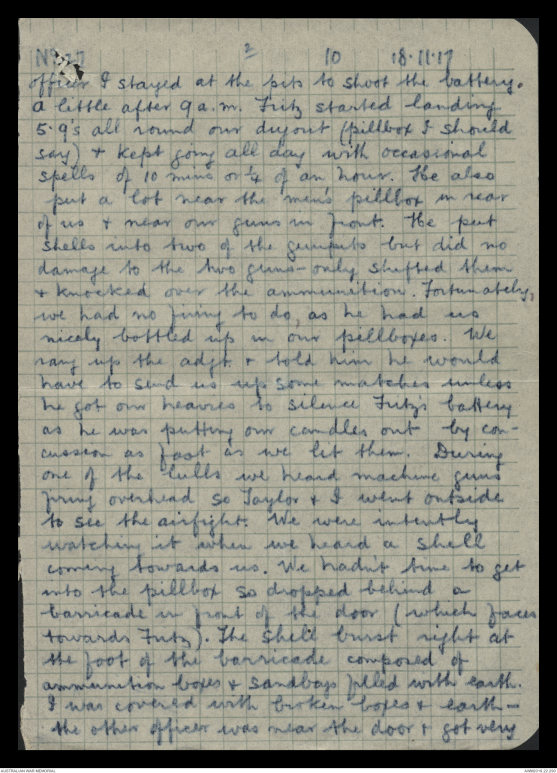 No 27 2 10 18.11.17
officer I stayed at the pits to shoot the battery.
A little after 9 a.m. Fritz started landing
5.9's all round our dugout (pillbox I should
say) & kept going all day with occasional
spells of 10 mins or ¼ of an hour. He also
put a lot near the men's pillbox in rear
of us & near our guns in front. He put
shells into two of the gunpits but did no
damage to the two guns - only shifted them
& knocked over the ammunition. Fortunately,
we had no firing to do, as he had us
nicely bottled up in our pillboxes. We
rang up the adjt. & told him he would
have to send us up some matches unless
he got our heavies to silence Fritz's battery
as he was putting our candles out by con-
cussion as fast as we lit them. During
one of the lulls we heard machine guns
firing overhead so Taylor & I went outside
to see the airfight. We were intently
watching it when we heard a shell
coming towards us. We hadn't time to get
into the pillbox so dropped behind a
barricade in front of the door (which faces
towards Fritz). The shell burst right at
the foot of the barricade composed of
ammunition boxes & sandbags filled with earth.
I was covered with broken boxes & earth -
the other officer was near the door & got very
AUSTRALIAN WAR MEMORIAL